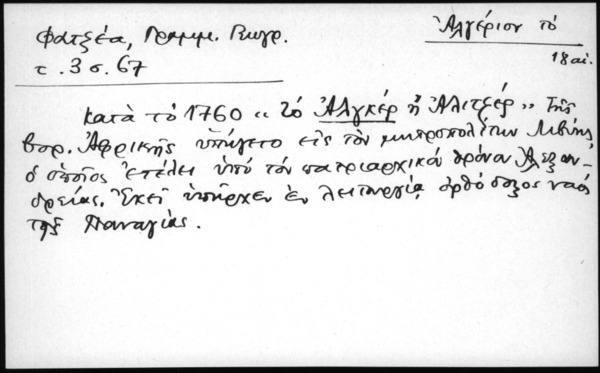 Φατζέα, Γραμμ. Γεωγρ.
τ. 3 σ. 67
Ἀλγέριον τό
18 αἰ.
κατὰ τὸ 1760 « τὸ Ἀλγκέρ ἤ Ἀλιτζέρ » τῆς
βορ. Ἀφρικῆς ὑπήγετο εἰς τὸν μητροπολίτην Λιβύης
ὁ ὁποῖος ἐτέλει ὑπό τόν πατριαρχικόν θρόνον Ἀλεξαν-
δρείας. Ἐκεῖ ὑπῆρχεν ἐν λειτουργίᾳ ὀρθόδοξος ναός
τῆς Παναγίας.